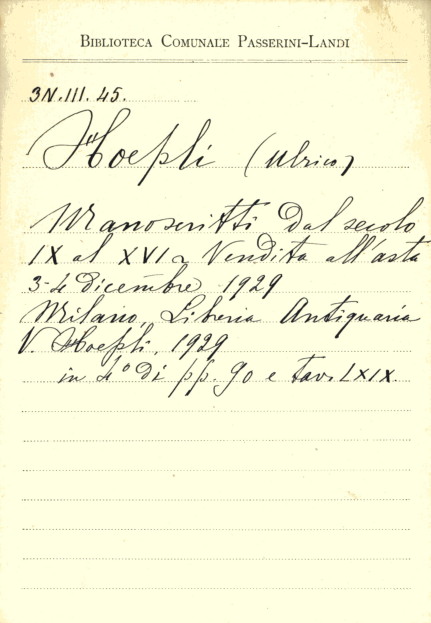 BIBLIOTECA COMUNALE PASSERINI-LANDI
3N.III.45.
Hoepli (Ulrico)
Manoscritti dal secolo
IX al XVI. Vendita all'asta
3-4 dicembre 1929
Milano, Libreria Antiquaria
U. Hoepli, 1929
in 4° di pp. 90 e tav. LXIX.